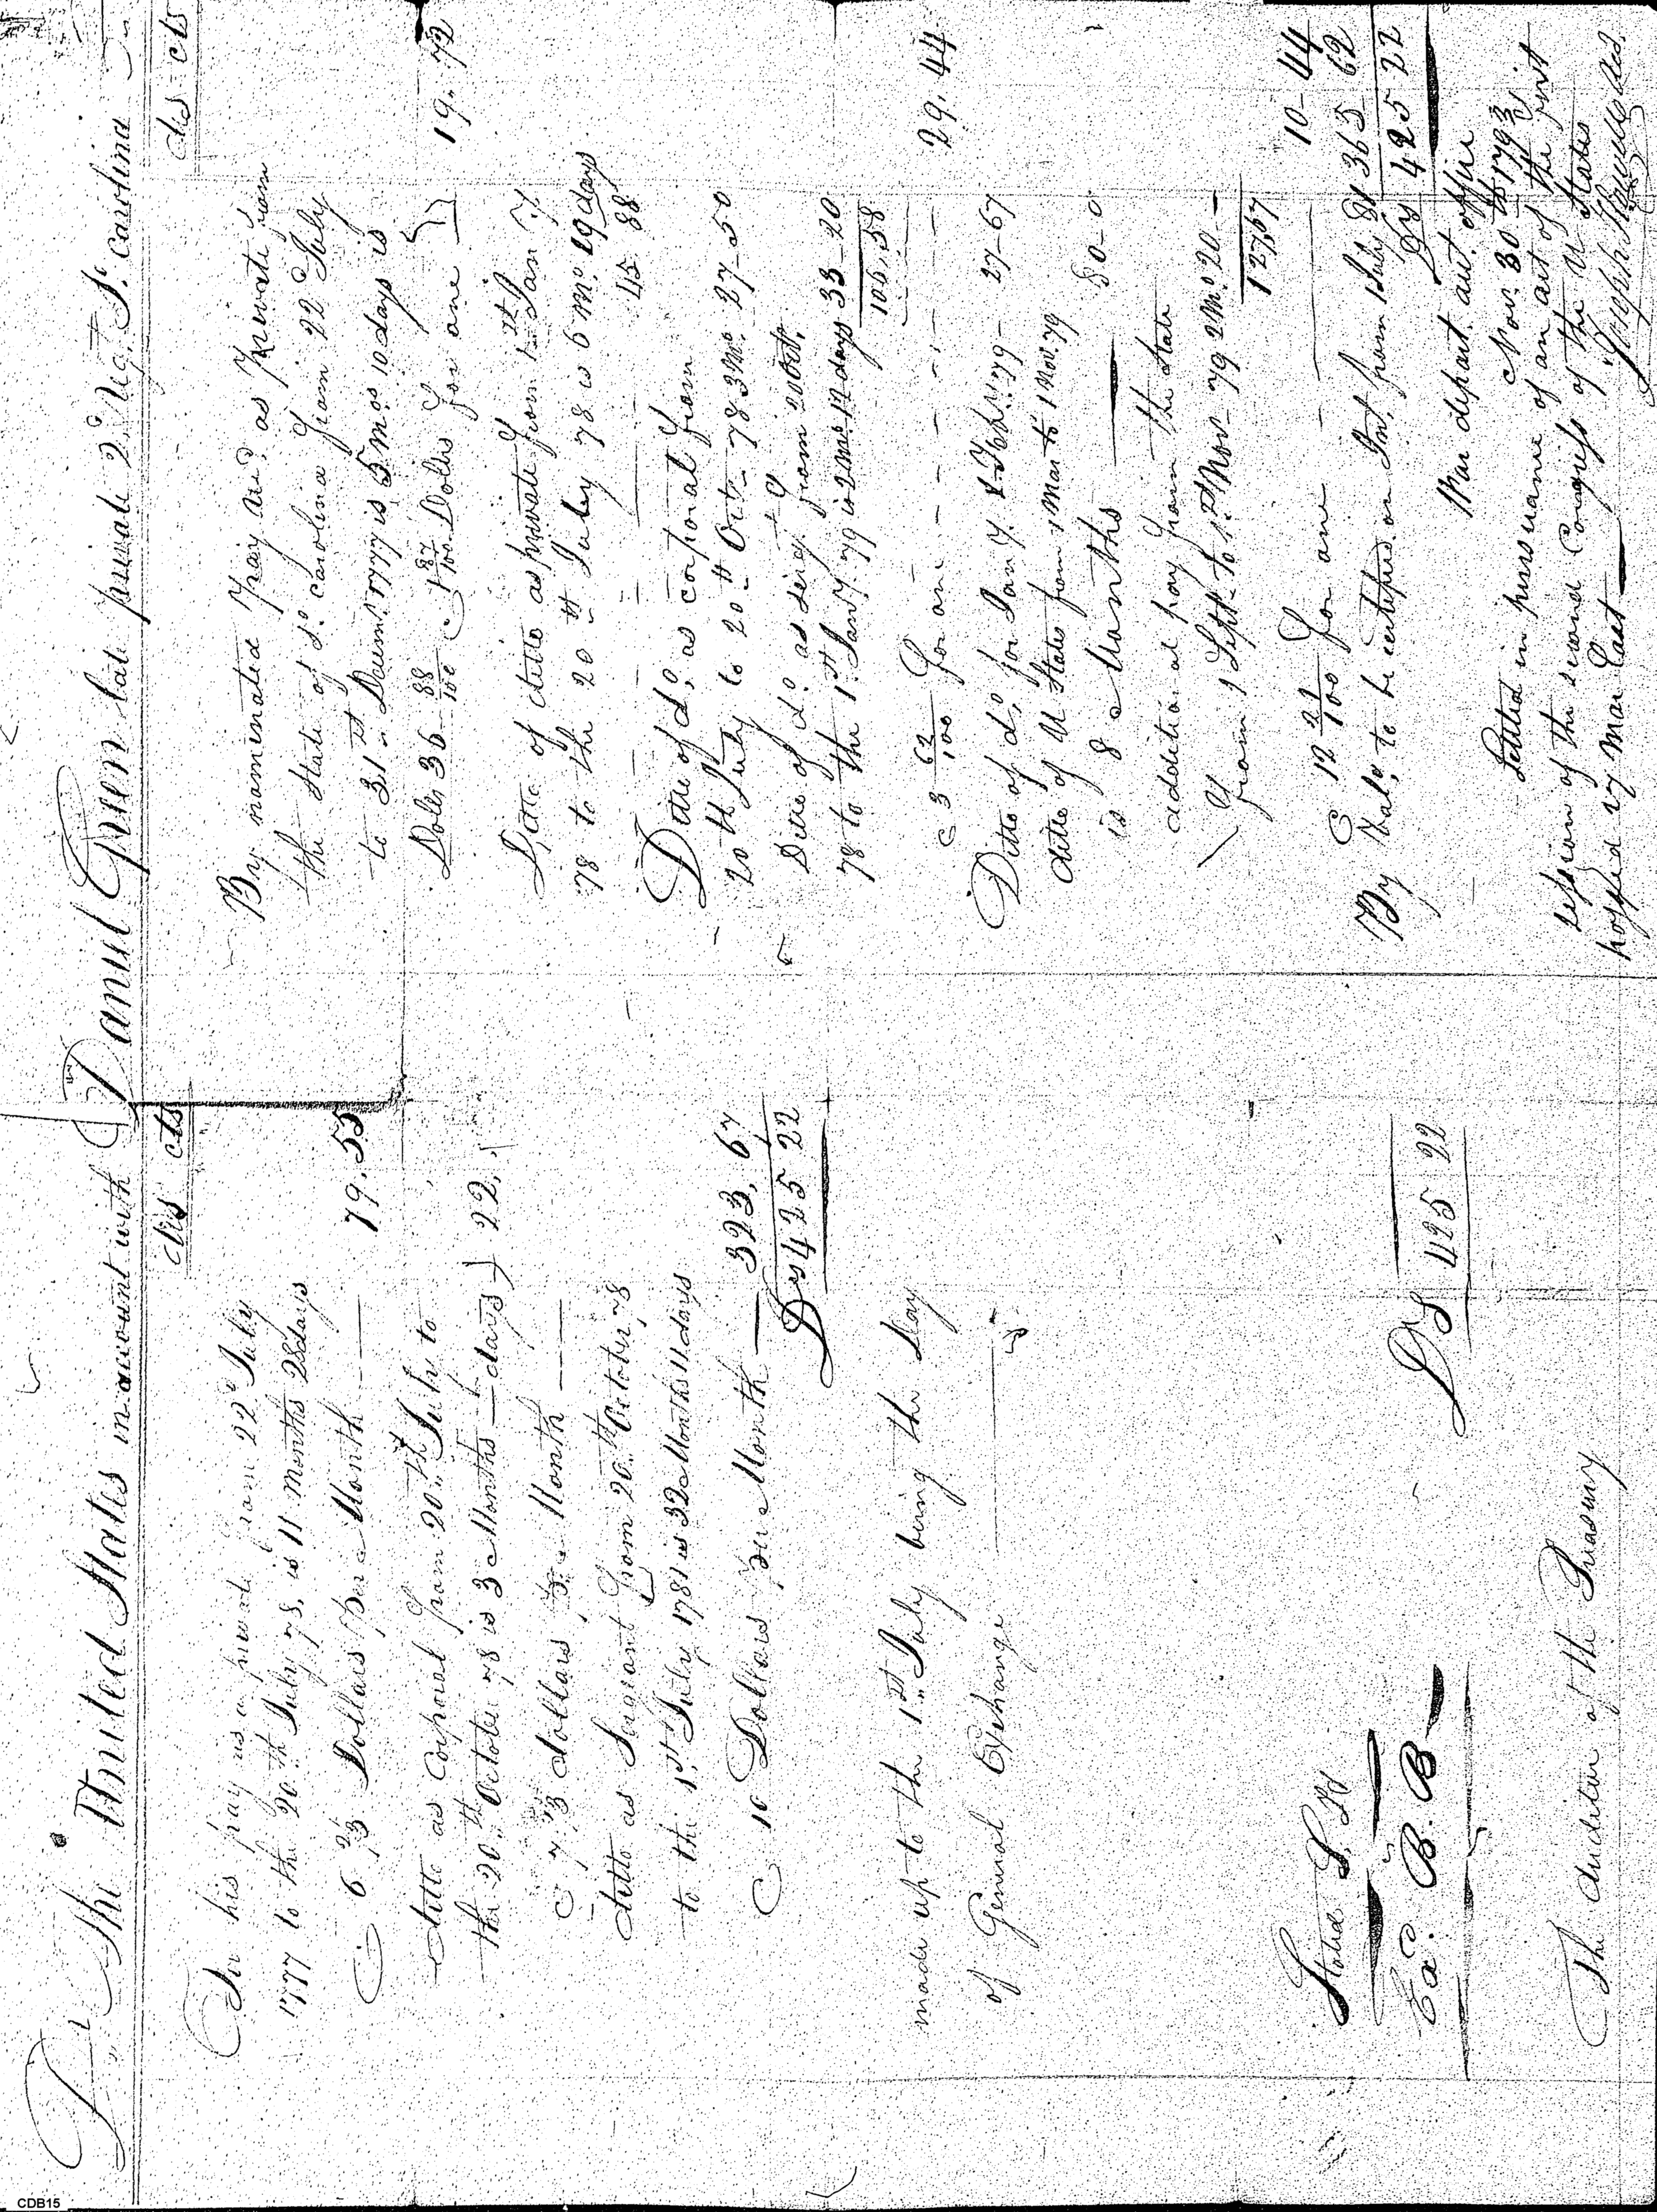 Dr The United States in account with Daniel Green late private 2d Reg. So. carolina
dls cts
For his pay as a private from 22d July
1777 to the 20th July 78, is 11 Months 28days
@ 6 2/3 Dollars per Month — 79.55
ditto as Corporal from 20th July to
the 20th October 78 is 3 Months — days } 22.
@ 7 1/3 dollars Month —
ditto as Sergeant from 20th October, 78
to the 1st July 1781 is 32 Months 11 days
@ 10 Dollars per Month — 323.67
Drs 425 22
made up to the 1st July being the day
of General Exchange —
Stated
Exd. B. B
Drs 425 22
The Auditor of the Treasury
dls cts
By nominated pay recd. as private from
the State of So. carolina from 22 July
to 31st Decemr. 1777 is 5 mos 10 days is
Dolls 36 88/100 @ 1 87/100 Dolls for one } 19.72
Ditto of ditto as private from 1st Jan'y
78 to the 20th July 78 is 6 Mo. 19 days
45 88
Ditto of do. as corporal from
20th July to 20th Octr. 78 3 Mo. 27-50
Ditto of do. as sergt. from 20 Octr.
78 to the 1st Jan'y. 79 is 2 Mo. 12 days 33-20
106.58
@ 3 62/100 for one - - - - 29.44
Ditto of do. for Jan'y. & Feby. 79 - 27-67
ditto of U States from 1 Mar to 1 Nov. 79
is 8 Months — 80-0
additional pay from the State
from 1 Sept. to 1st Nov. 79 2 Mo. 20 -
127,67
@ 12 22/100 for one — 10-44
By Bale. to be certified on Int. from 1 July 81 365 62
Drs 425 22
War depart. acct. office
Nov. 30th 1793
Settled in pursuance of an act of the first
session of the second Congress of the U States
passed 27 Mar last —
Joseph Howell